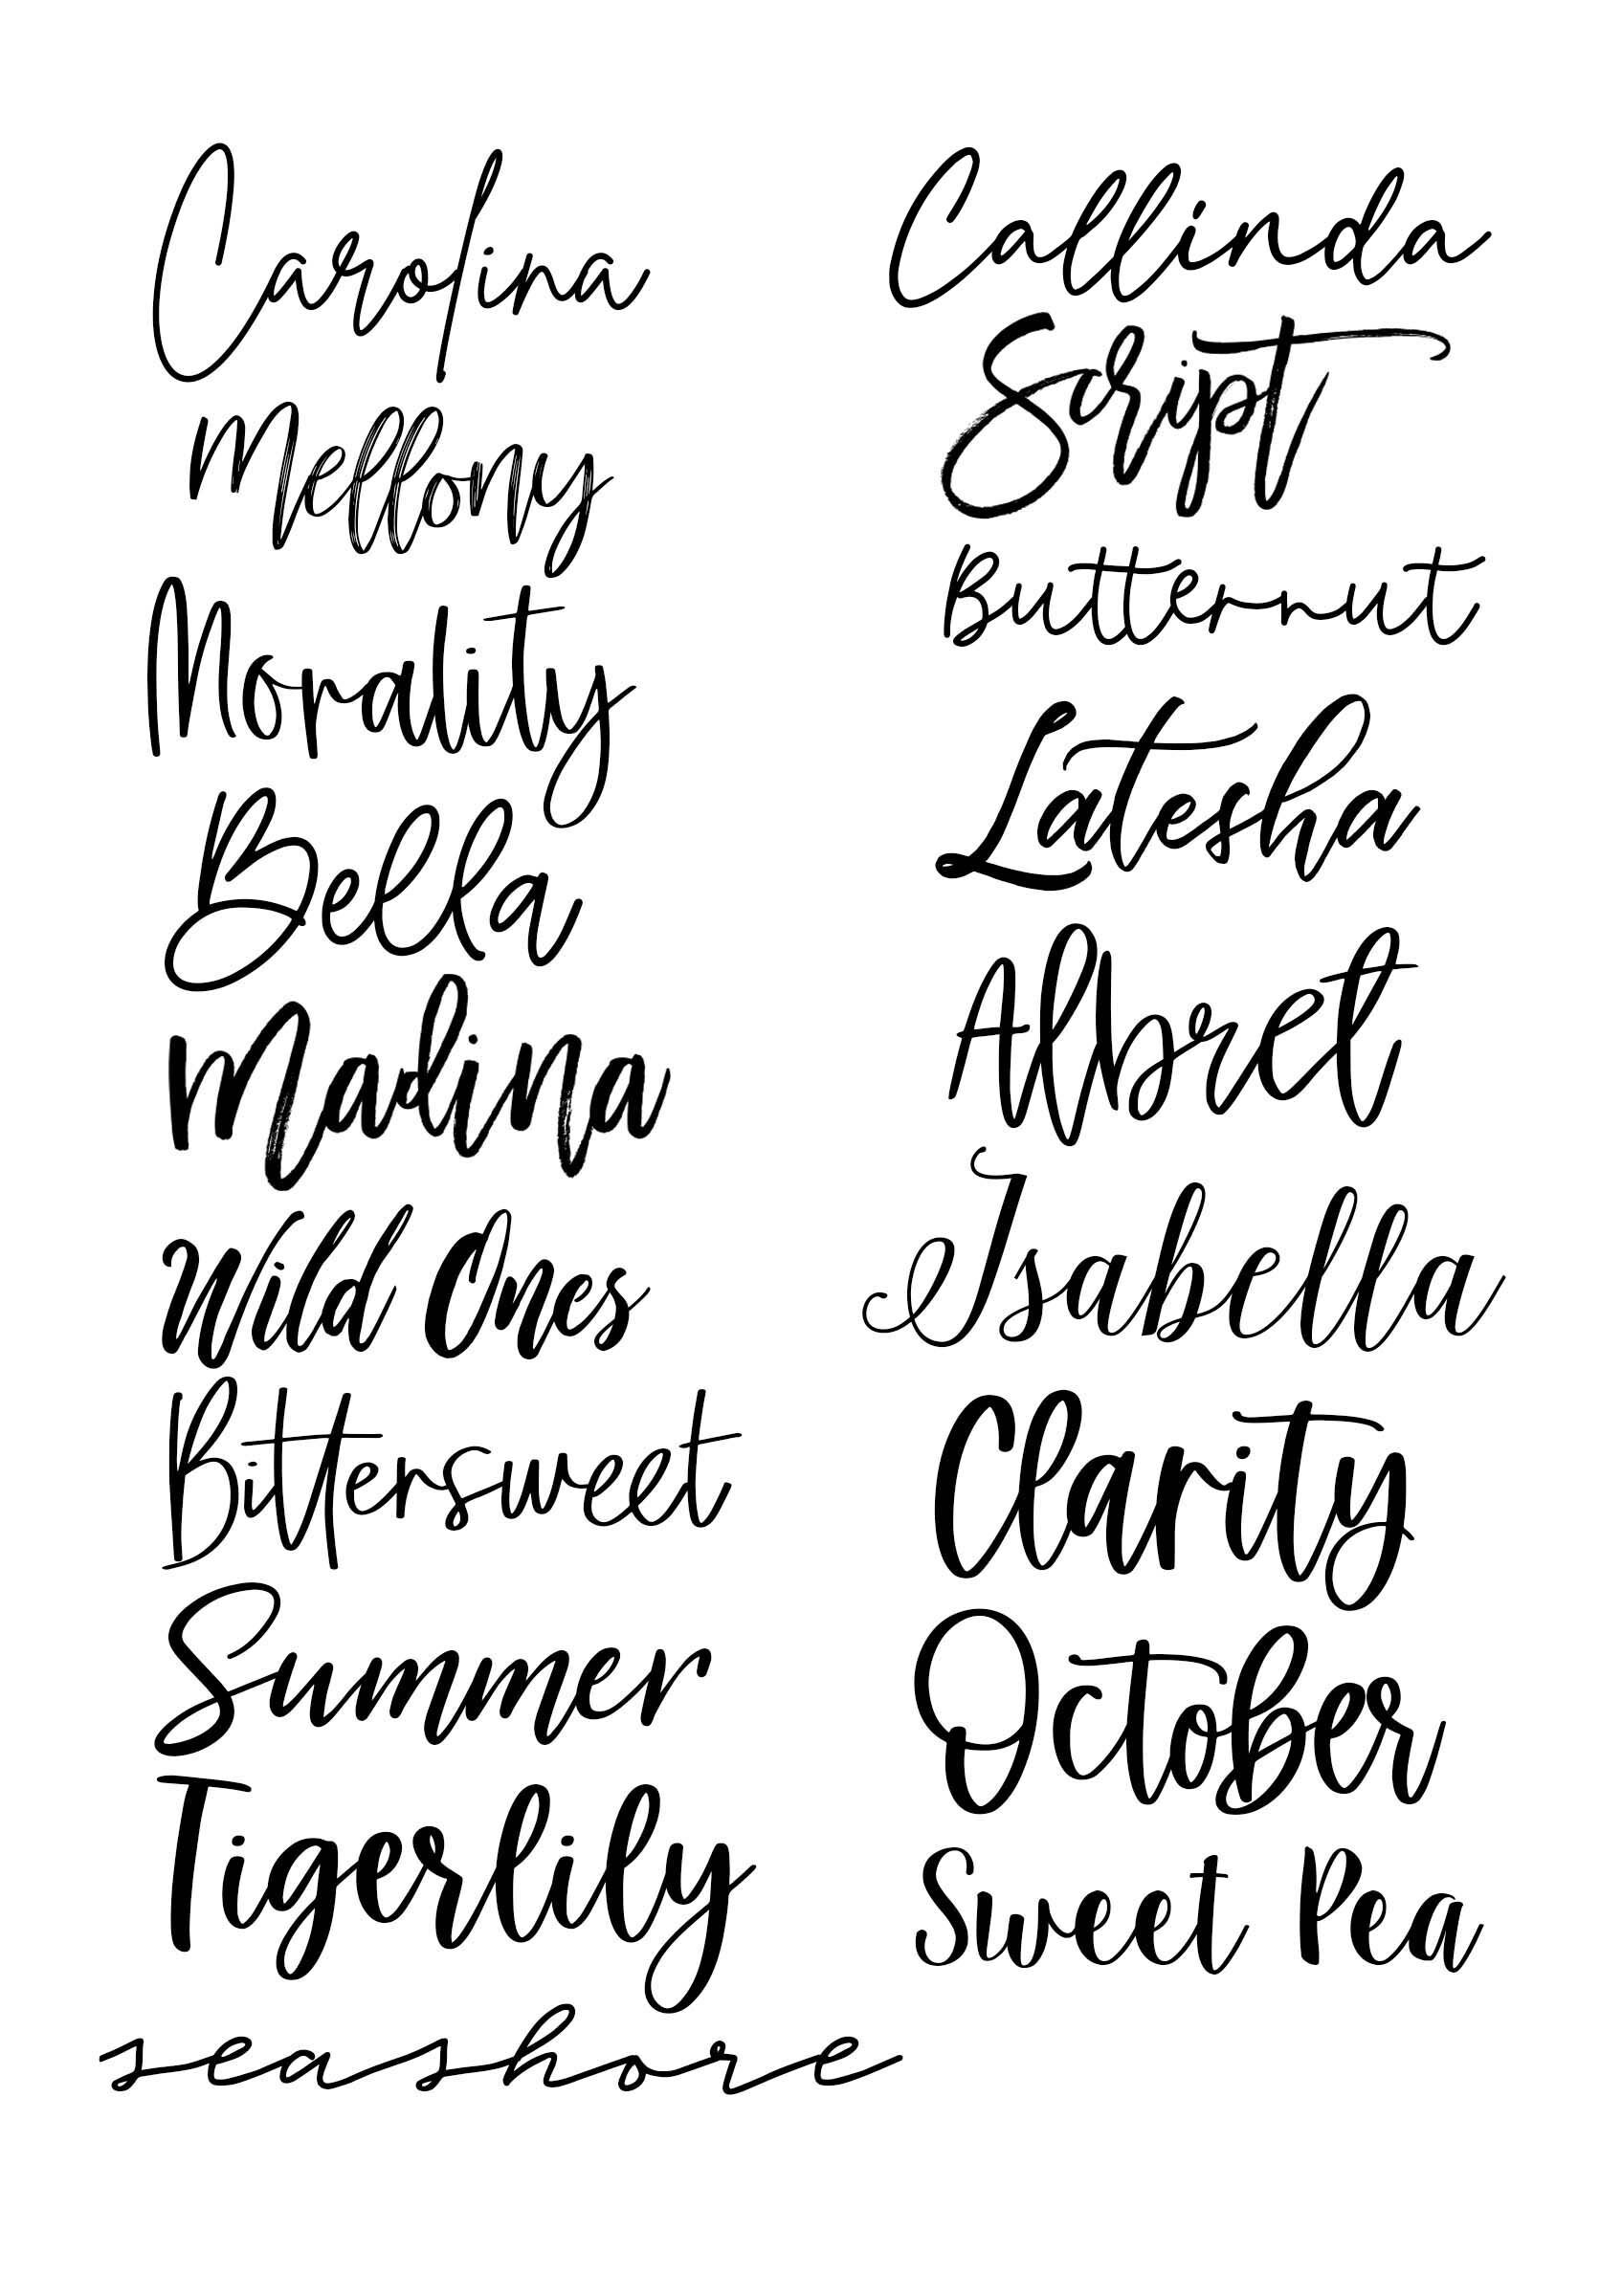 Carolina
Mellony
Morality
Bella
Madina
Wild Ones
Bittersweet
Summer
Tigerlily
seashore
Callinda
Script
Butternut
Latesha
Albret
Isabella
Clarity
October
Sweet Pea